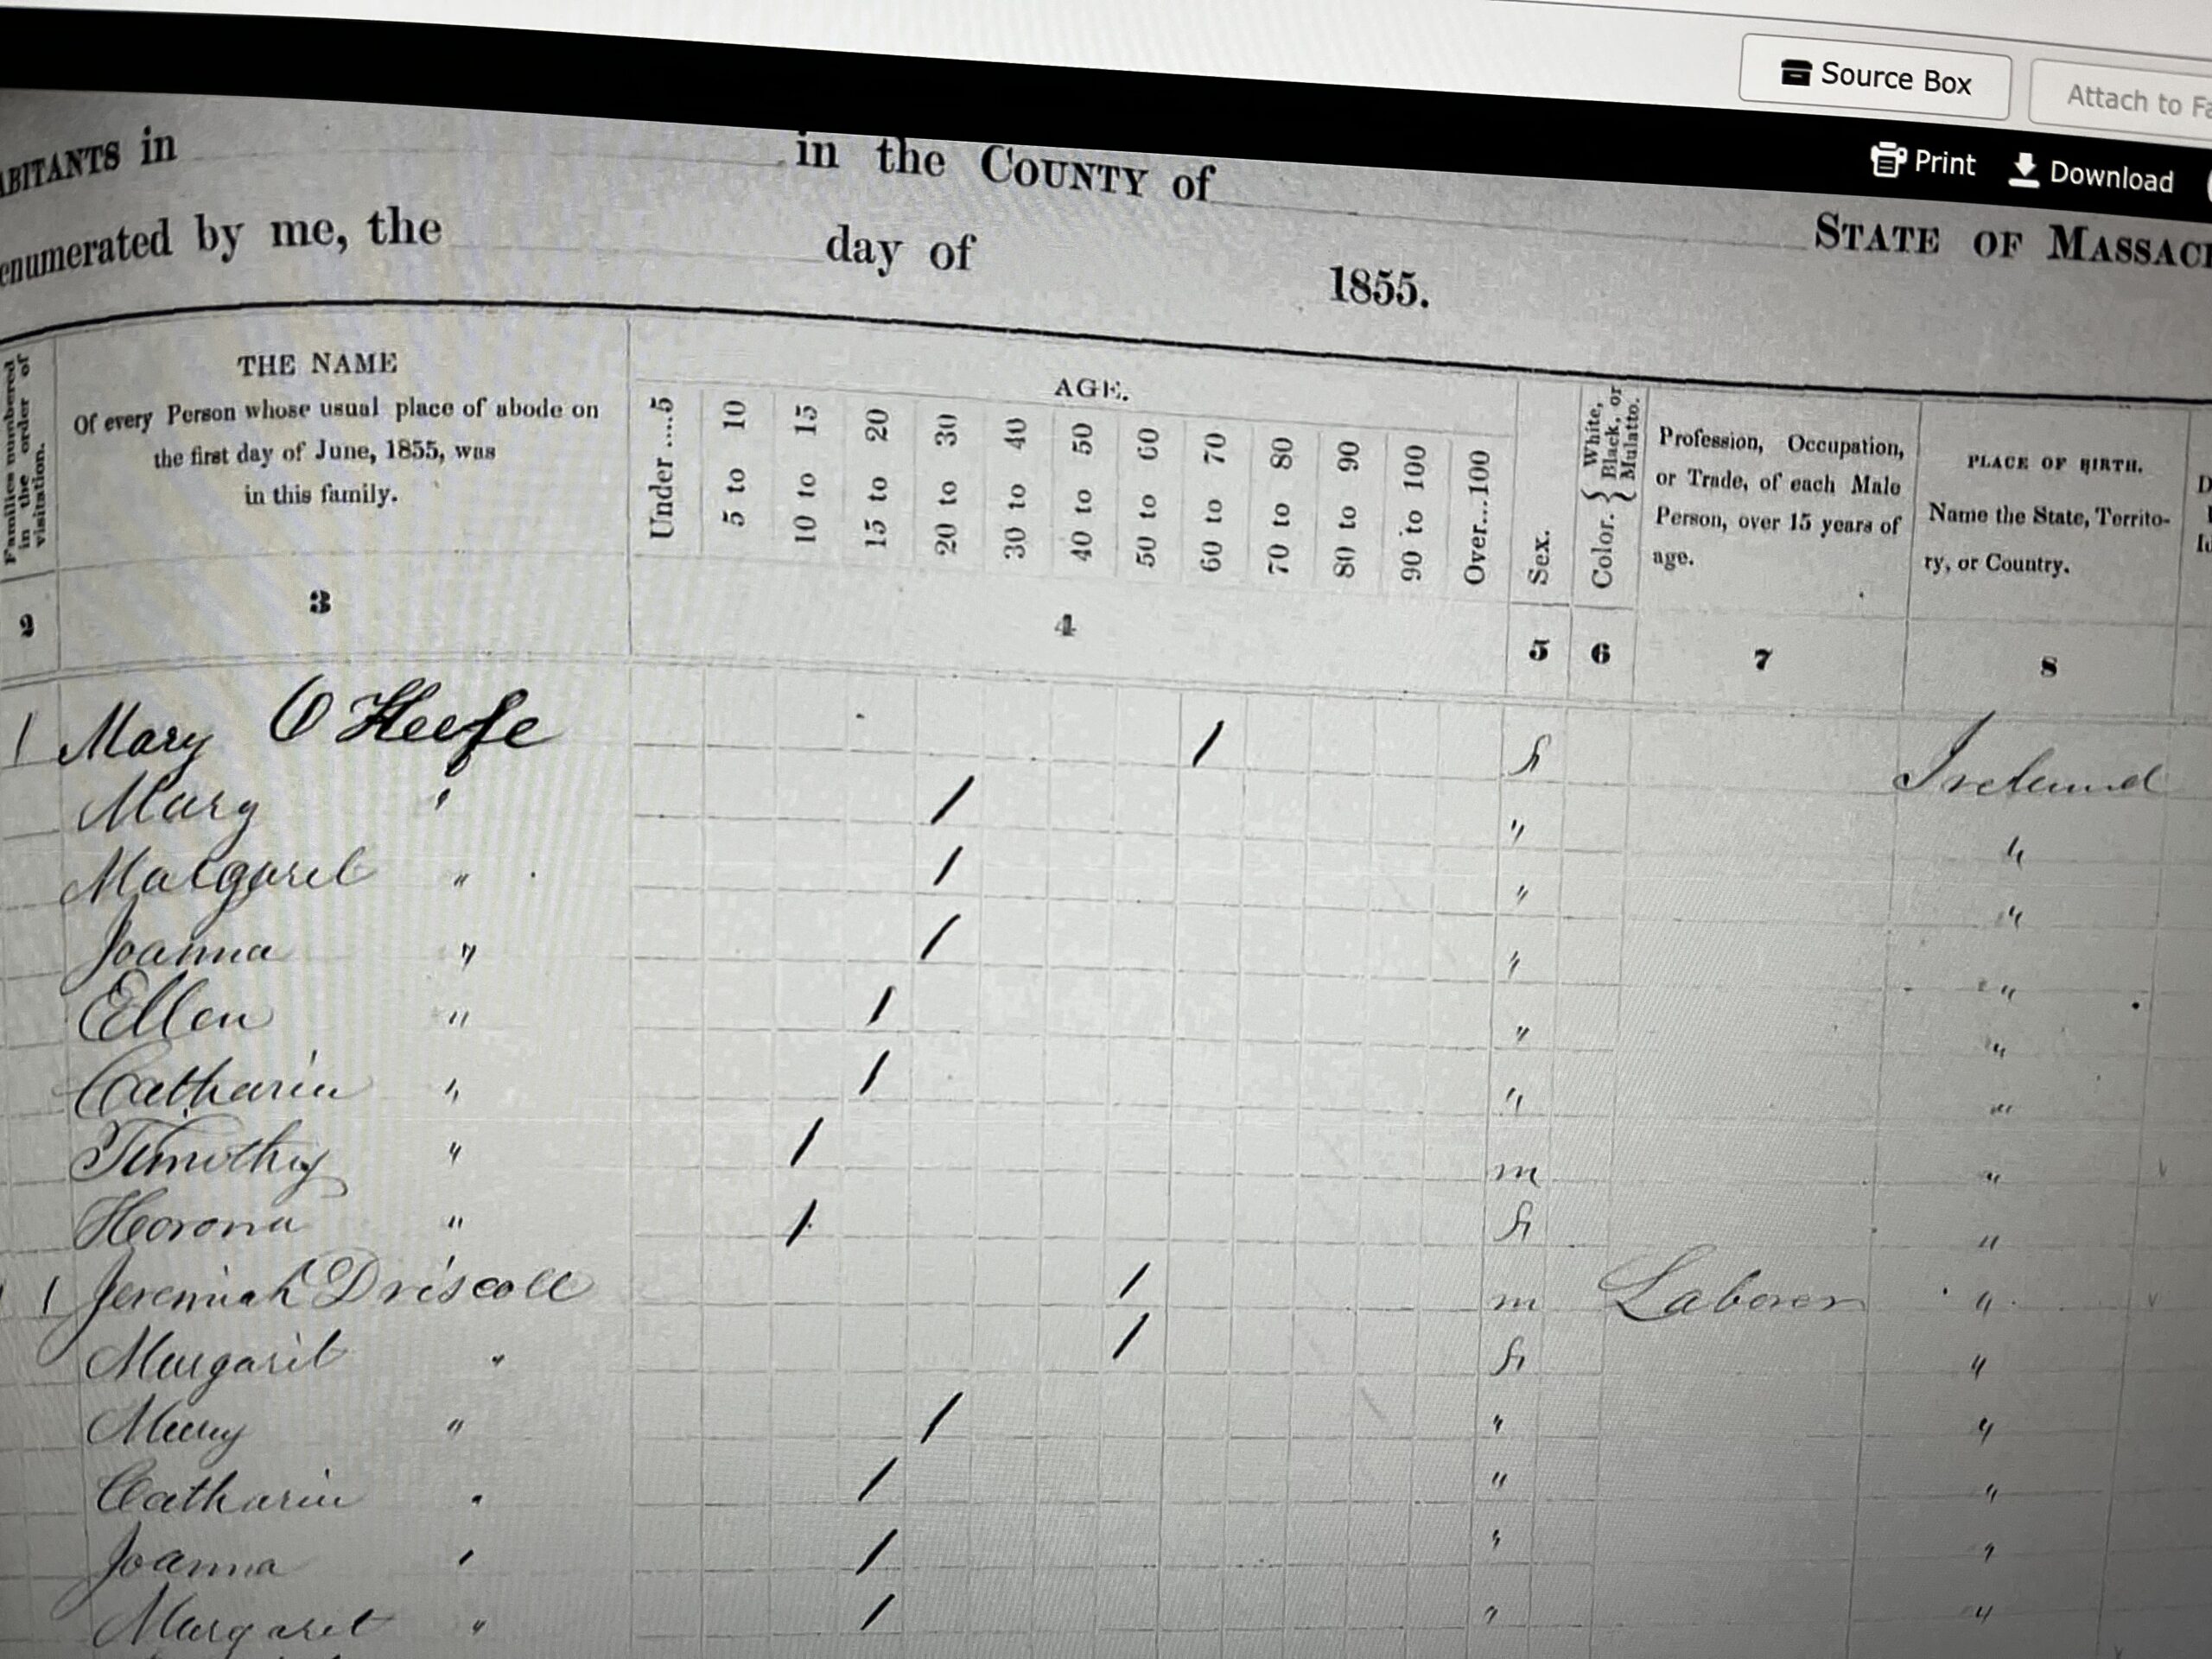 Source Box
Attach to Fa
Print Download
ABITANTS in in the COUNTY of STATE OF MASSACH
enumerated by me, the day of 1855.
Families numbered in the order of visitation.
THE NAME
Of every Person whose usual place of abode on
the first day of June, 1855, was
in this family.
AGE.
Under.....5
5 to 10
10 to 15
15 to 20
20 to 30
30 to 40
40 to 50
50 to 60
60 to 70
70 to 80
80 to 90
90 to 100
Over...100
Sex.
Color. { White, Black, or Mulatto.
Profession, Occupation,
or Trade, of each Male
Person, over 15 years of
age.
PLACE OF BIRTH.
Name the State, Territo-
ry, or Country.
2 3 4 5 6 7 8
1 Mary O'Keefe / f Ireland
Mary " / " "
Margaret " / " "
Joanna " / " "
Ellen " / " "
Catharin " / " "
Timothy " / m "
Honora " / f "
1 Jeremiah Driscoll / m Laborer "
Margaret " / f "
Mary " / " "
Catharin " / " "
Joanna " / " "
Margaret " / " "